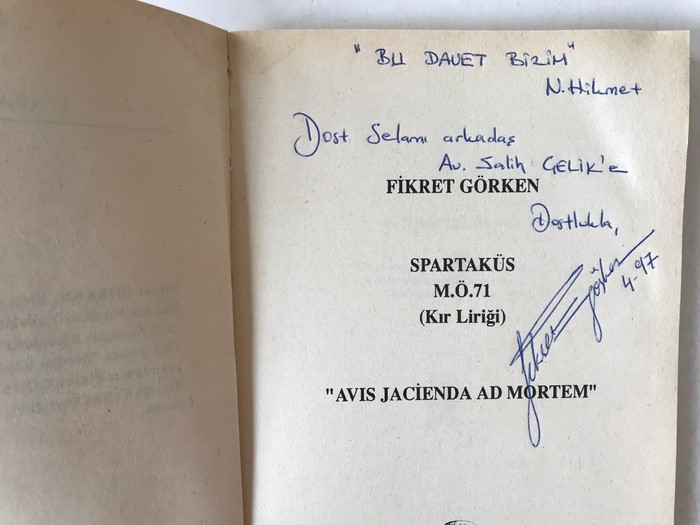 "BU DAVET BİZİM"
N. Hikmet
Dost Selamı arkadaş
Av. Salih ÇELİK'e
FİKRET GÖRKEN
Dostlukla,
SPARTAKÜS
M.Ö.71
(Kır Liriği)
Fikret Görken
4-97
"AVIS JACIENDA AD MORTEM"